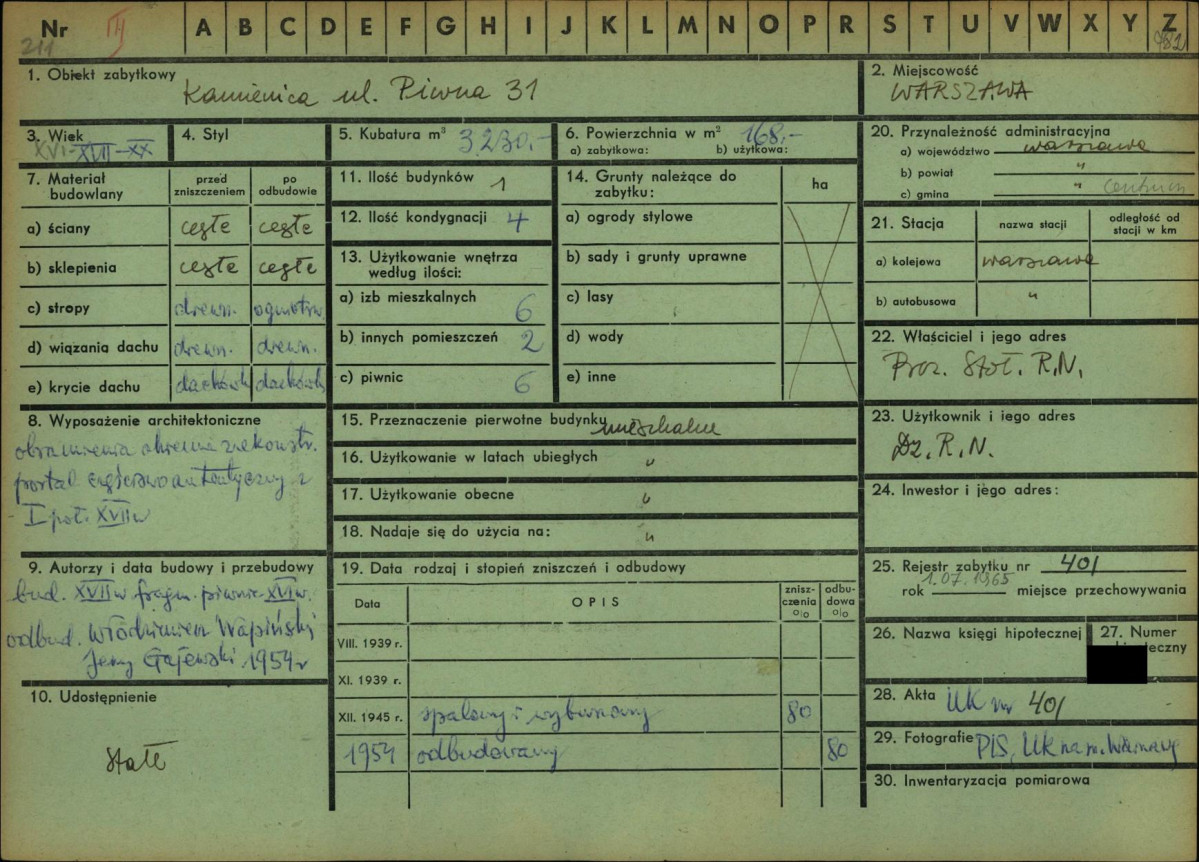 Nr
211
A B C D E F G H I J K L M N O P R S T U V W X Y Z
982
1. Obiekt zabytkowy
Kamienica ul. Piwna 31
2. Miejscowość
WARSZAWA
3. Wiek
XVI-XVII-XX
4. Styl
5. Kubatura m³ 3230.-
6. Powierzchnia w m² 168.-
a) zabytkowa: b) użytkowa:
20. Przynależność administracyjna
a) województwo warszawa
b) powiat "
c) gmina " Centrum
7. Materiał budowlany
przed zniszczeniem
po odbudowie
a) ściany cegłe cegłe
b) sklepienia cegłe cegłe
c) stropy drewn. ogniotrw.
d) wiązania dachu drewn. drewn.
e) krycie dachu dachówk dachówk
11. Ilość budynków 1
12. Ilość kondygnacji 4
13. Użytkowanie wnętrza
według ilości:
a) izb mieszkalnych 6
b) innych pomieszczeń 2
c) piwnic 6
14. Grunty należące do
zabytku:
ha
a) ogrody stylowe
b) sady i grunty uprawne
c) lasy
d) wody
e) inne
21. Stacja
nazwa stacji
odległość od
stacji w km
a) kolejowa warszawa
b) autobusowa "
22. Właściciel i jego adres
Prez. Stoł. R.N.
8. Wyposażenie architektoniczne
obramienia okienne zrekonstr.
portal częściowo autentyczny z
I poł. XVII w
15. Przeznaczenie pierwotne budynku mieszkalne
16. Użytkowanie w latach ubiegłych "
17. Użytkowanie obecne "
18. Nadaje się do użycia na: "
23. Użytkownik i jego adres
Dz. R.N.
24. Inwestor i jego adres:
9. Autorzy i data budowy i przebudowy
bud. XVII w fragm. piwnic XVI w.
odbud. Włodzimierz Wapiński
Jerzy Gajewski 1954 r
19. Data rodzaj i stopień zniszczeń i odbudowy
Data
OPIS
znisz-
czenia
o/o
odbu-
dowa
o/o
VIII. 1939 r.
XI. 1939 r.
XII. 1945 r. spalony i wyburzony 80
1954 odbudowany 80
25. Rejestr zabytku nr 401
rok 1.07.1965 miejsce przechowywania
26. Nazwa księgi hipotecznej
27. Numer
teczny
28. Akta UK nr 401
29. Fotografie PIS, UK na m. Warszawy
30. Inwentaryzacja pomiarowa
10. Udostępnienie
Stałe